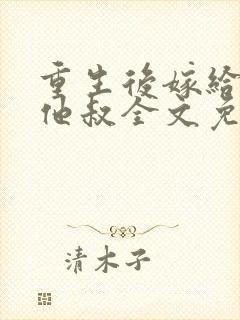 重生後嫁給
他叔全文免
清木子